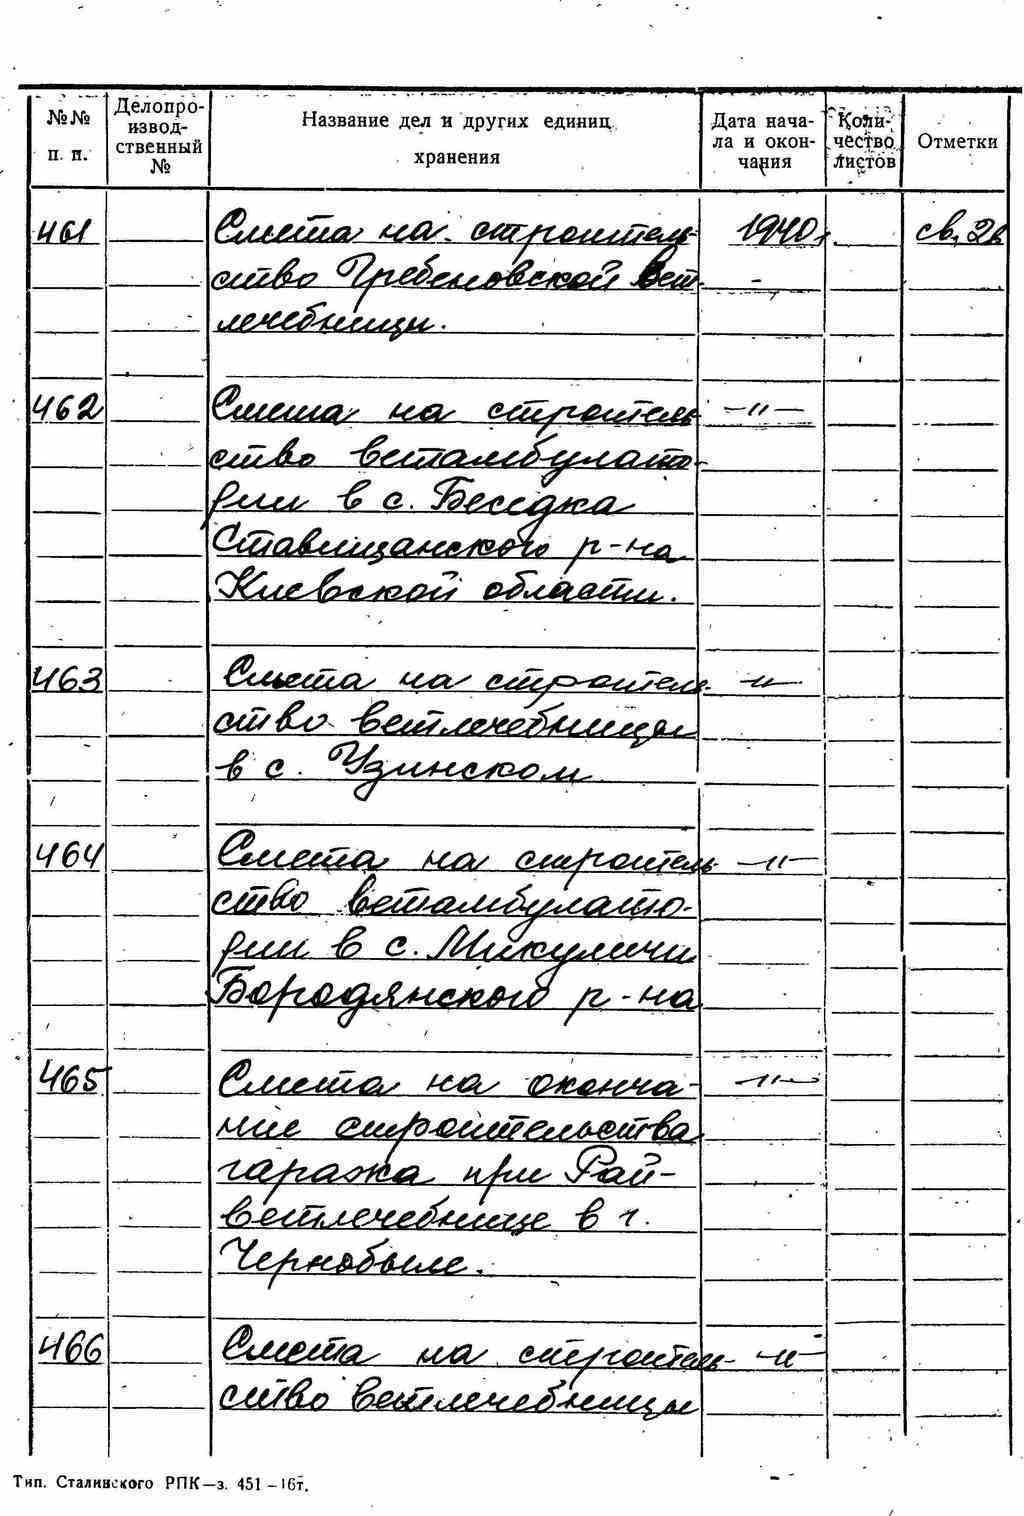 №№ п. п. Делопро-изводственный № Название дел и других единиц хранения Дата нача-ла и окон-чания Коли-чество листов Отметки
461 Смета на строитель- 1940г. св. 26
ство Гребеновской вет-
лечебницы.
462 Смета на строитель- —"—
ство ветамбулато-
рии в с. Беседка
Ставищанского р-на
Киевской области.
463 Смета на строитель- —"—
ство ветлечебницы
в с. Узинском
464 Смета на строитель- —"—
ство ветамбулато-
рии в с. Микуличи
Бородянского р-на
465 Смета на оконча- —"—
ние строительства
гаража при Рай-
ветлечебнице в г.
Чернобыле.
466 Смета на строитель- —"—
ство ветлечебницы
Тип. Сталинского РПК—з. 451—16т.